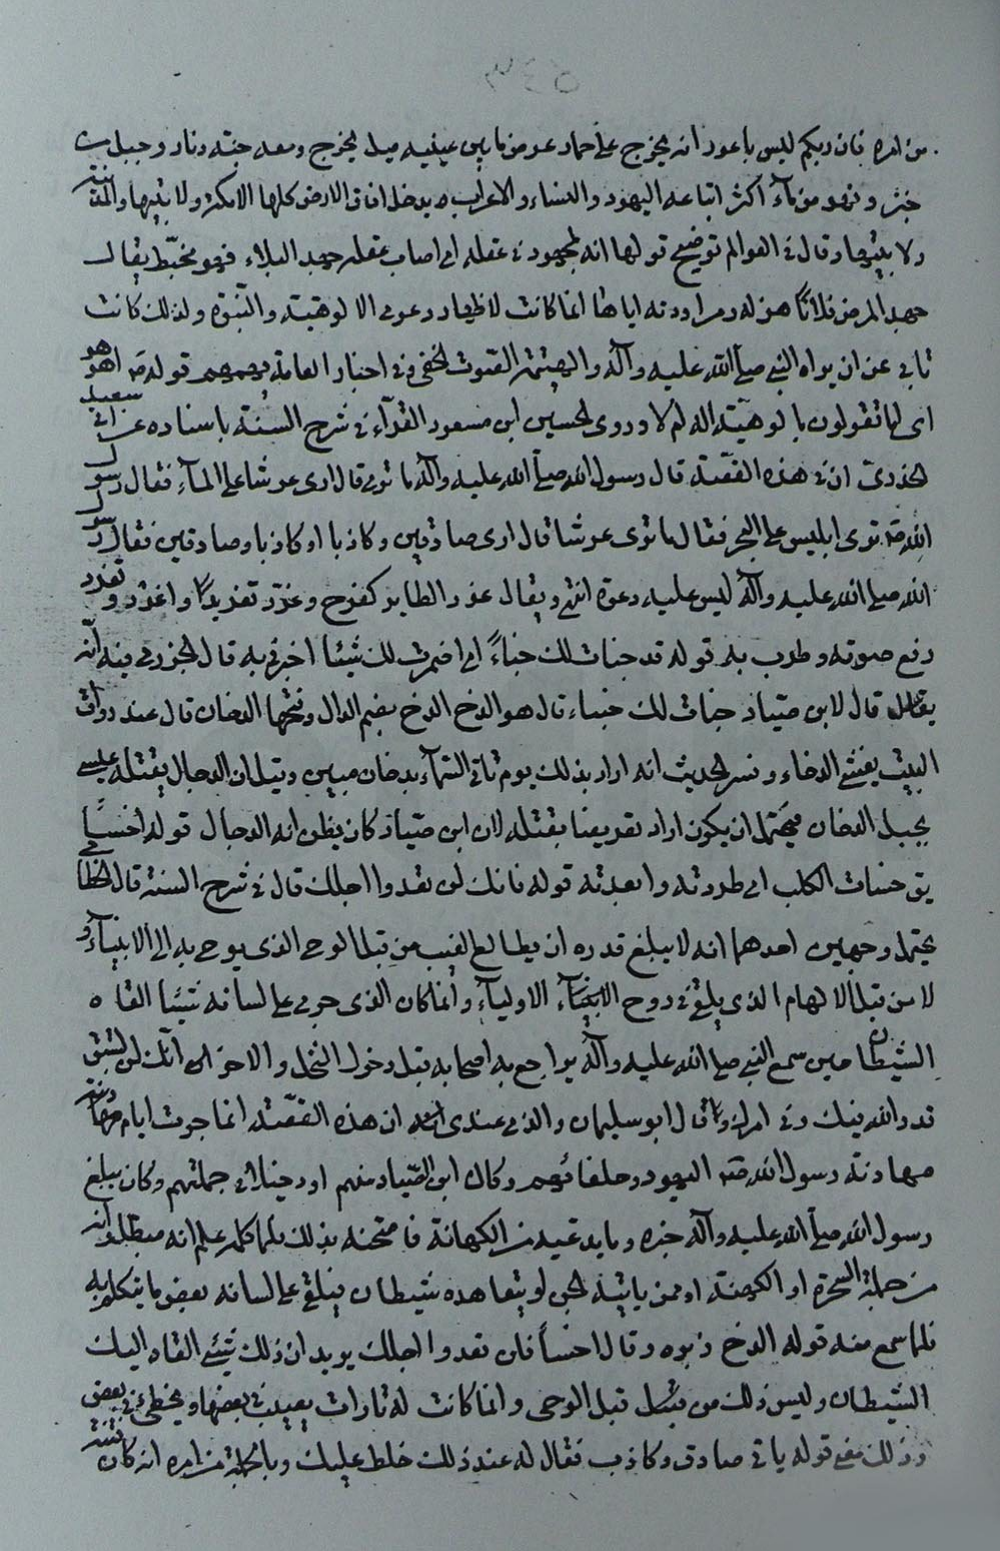 ٥٤٣
من امره فان ربكم ليس باعور انه يخرج على حمار عرض ما بين عينيه ميل يخرج ومعه جنة ونار وجبل من
خبز ونهر من ماء اكثر اتباعه اليهود والنساء والاعراب يدخل افاق الارض كلها الا مكة ولابتيها والمدينة
ولابتيها وقال في العوالم توضيح قولها انه لمجهود في عقله اي اصاب عقله جهد البلاء فهو مخبط يقال
جهد المرض فلاناً هزله ومراودته اياها انما كانت لاظهار دعوى الالوهية والنبوة ولذلك كانت
تابى عن ان يراه النبي صلى الله عليه وآله والهينمة الصوت الخفي وفي اخبار العامة قوله اهو هو
اي اما تقولون بالوهيته اله ام لا وروى الحسين ابن مسعود الفرآء في شرح السنة باسناده عن ابي سعيد
الخدري ان في هذه القصة قال رسول الله صلى الله عليه وآله ما ترى قال ارى عرشا على الماء فقال رسول
الله ترى ابليس على البحر فقال ما ترى عرشا قال ارى صادقين وكاذبا او كاذبا وصادقين فقال رسول
الله صلى الله عليه وآله ليس عليه دعوه انتهى ويقال غرد الطاير كفرح وغرّد تغريداً واغرد وتغرد
رفع صوته وطرب به قوله قد خبات لك خباءً اي اضمرت لك شيئا اخبرني به قال الجزري فيه انه
قال لابن صياد خبات لك خبيئا قال هو الدخ الدخ بضم الدال وفتحها الدخان قال عند رواق
البيت يغشى الدخا وفسر الحديث انه اراد بذلك يوم تاتي السمآء بدخان مبين وقيل ان الدجال يقتله عيسى
بجبل الدخان فيحتمل ان يكون اراد تعريضا بقتله لان ابن صياد كان يظن انه الدجال قوله اخسأ
يق خسات الكلب اي طردته وابعدته قوله فانك لن تعدوا اجلك قال في شرح السنة قال الخطابي
يحتمل وجهين احدهما انه لا يبلغ قدره ان يطالع الغيب من قبل الوحي الذي يوحى به الى الانبياء و
لا من قبل الالهام الذي يلقى في روح الاولياء وانما كان الذي جرى على لسانه شيئا القاه
الشيطان حين سمع النبي صلى الله عليه وآله يراجع به اصحابه قبل دخول النخل والاخر انك لن تسبق
قدر الله فيك وفي امرك قال ابو سليمان والذي عندي ان هذه القصة انما جرت ايام
مهادنة رسول الله اليهود وحلفائهم وكان ابن الصياد منهم او دخيلا في جملتهم وكان يبلغ
رسول الله صلى الله عليه وآله خبره وما يدعيه من الكهانة فامتحنه بذلك فلما كلمه علم انه مبطل وانه
من جملة السحرة او الكهنة او ممن ياتيه الجن او يتعاهده شيطان فيلقى على لسانه بعض ما يتكلم به
فلما سمع منه قوله الدخ زبره وقال اخسأ فلن تعدوا اجلك يريد ان ذلك شيئ القاه اليك
الشيطان وليس ذلك من قبل الوحي وانما كانت له تارات يصيب في بعضها ويخطئ في بعض
وذلك معنى قوله ياتي صادق وكاذب فقال له عند ذلك خلط عليك وبالجملة من امره انه كان فتنة